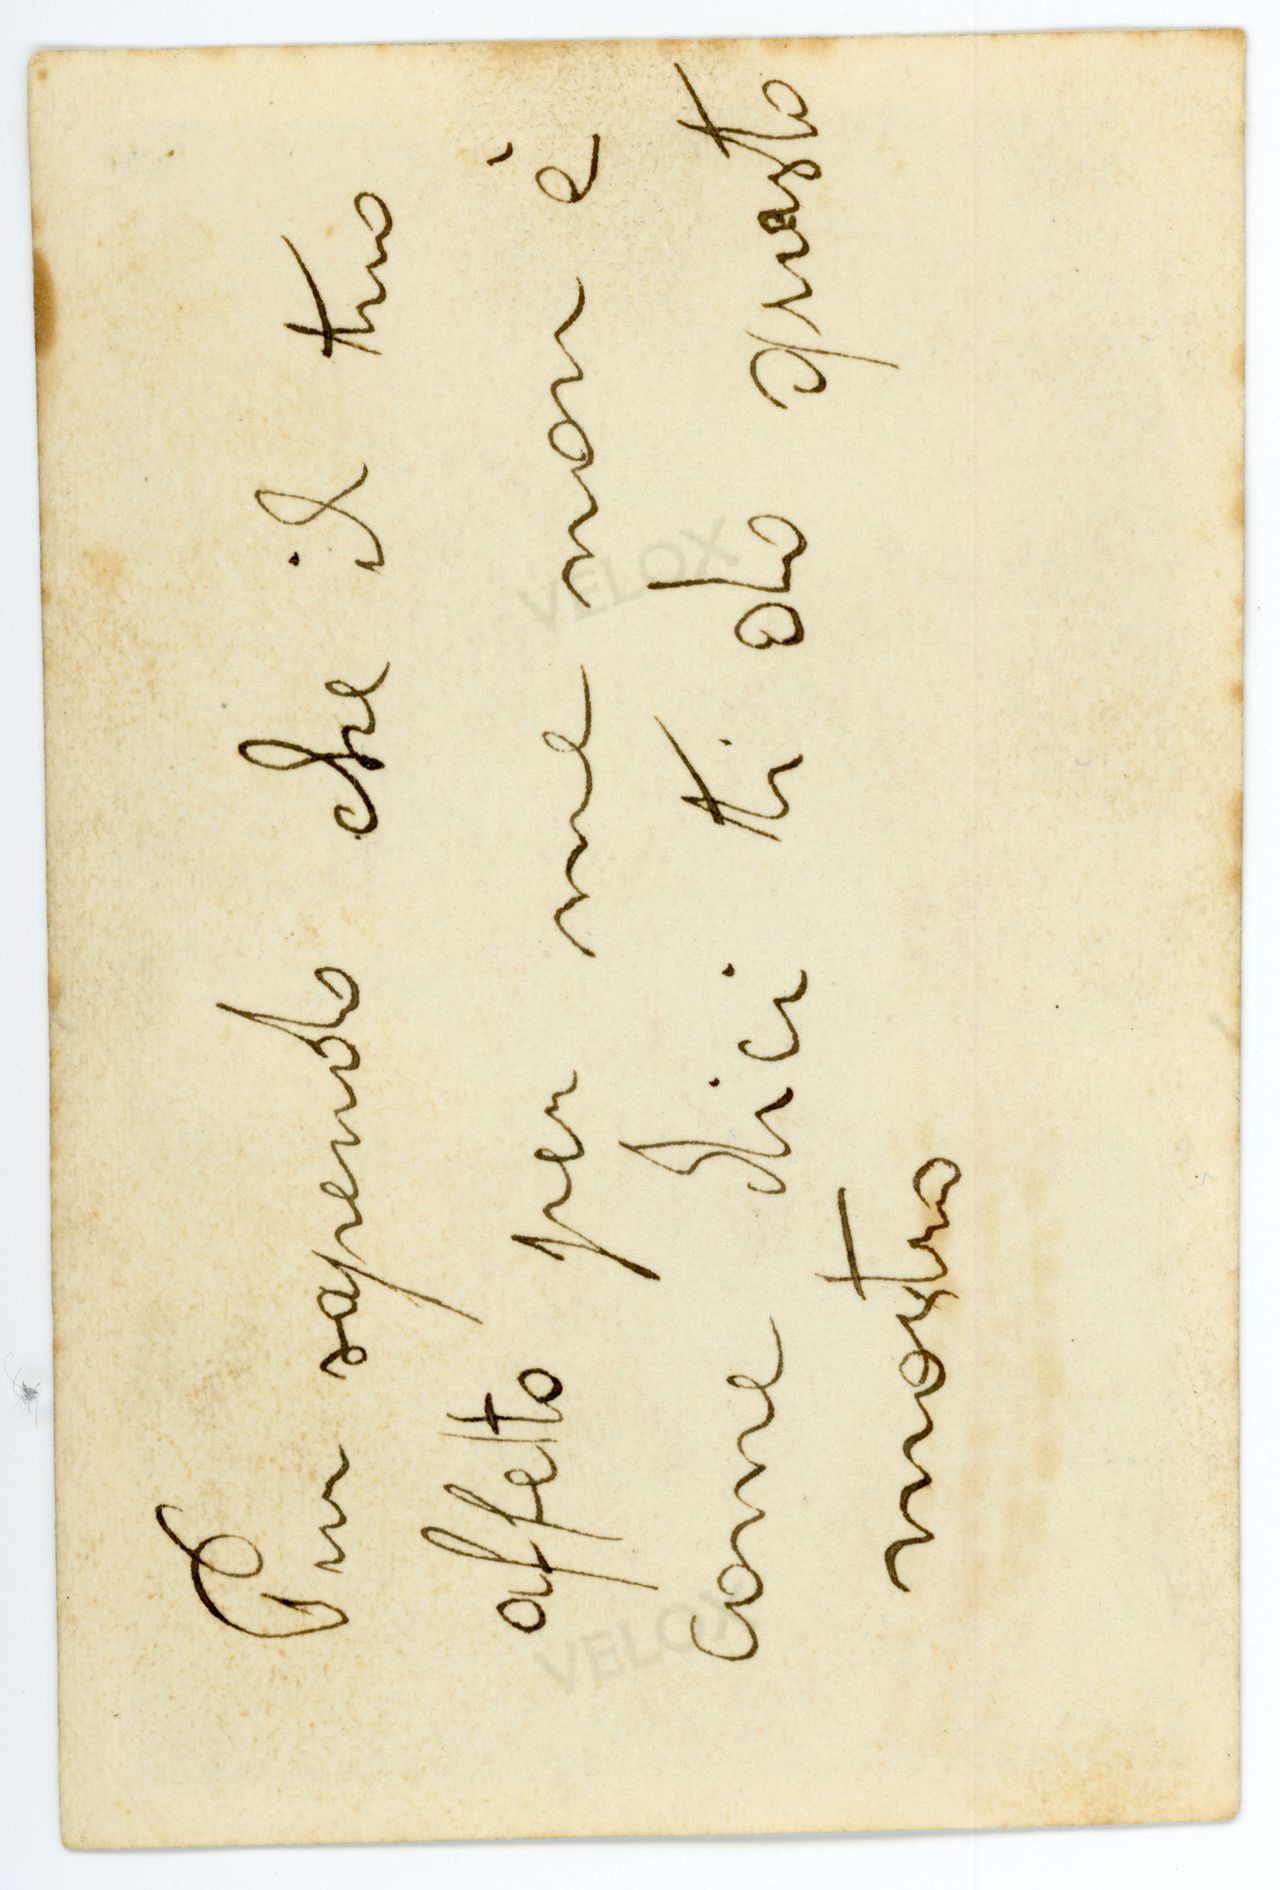 Pur sapendo che il tuo
affetto per me non è
come dici ti do questo
nostro
VELOX
VELOX